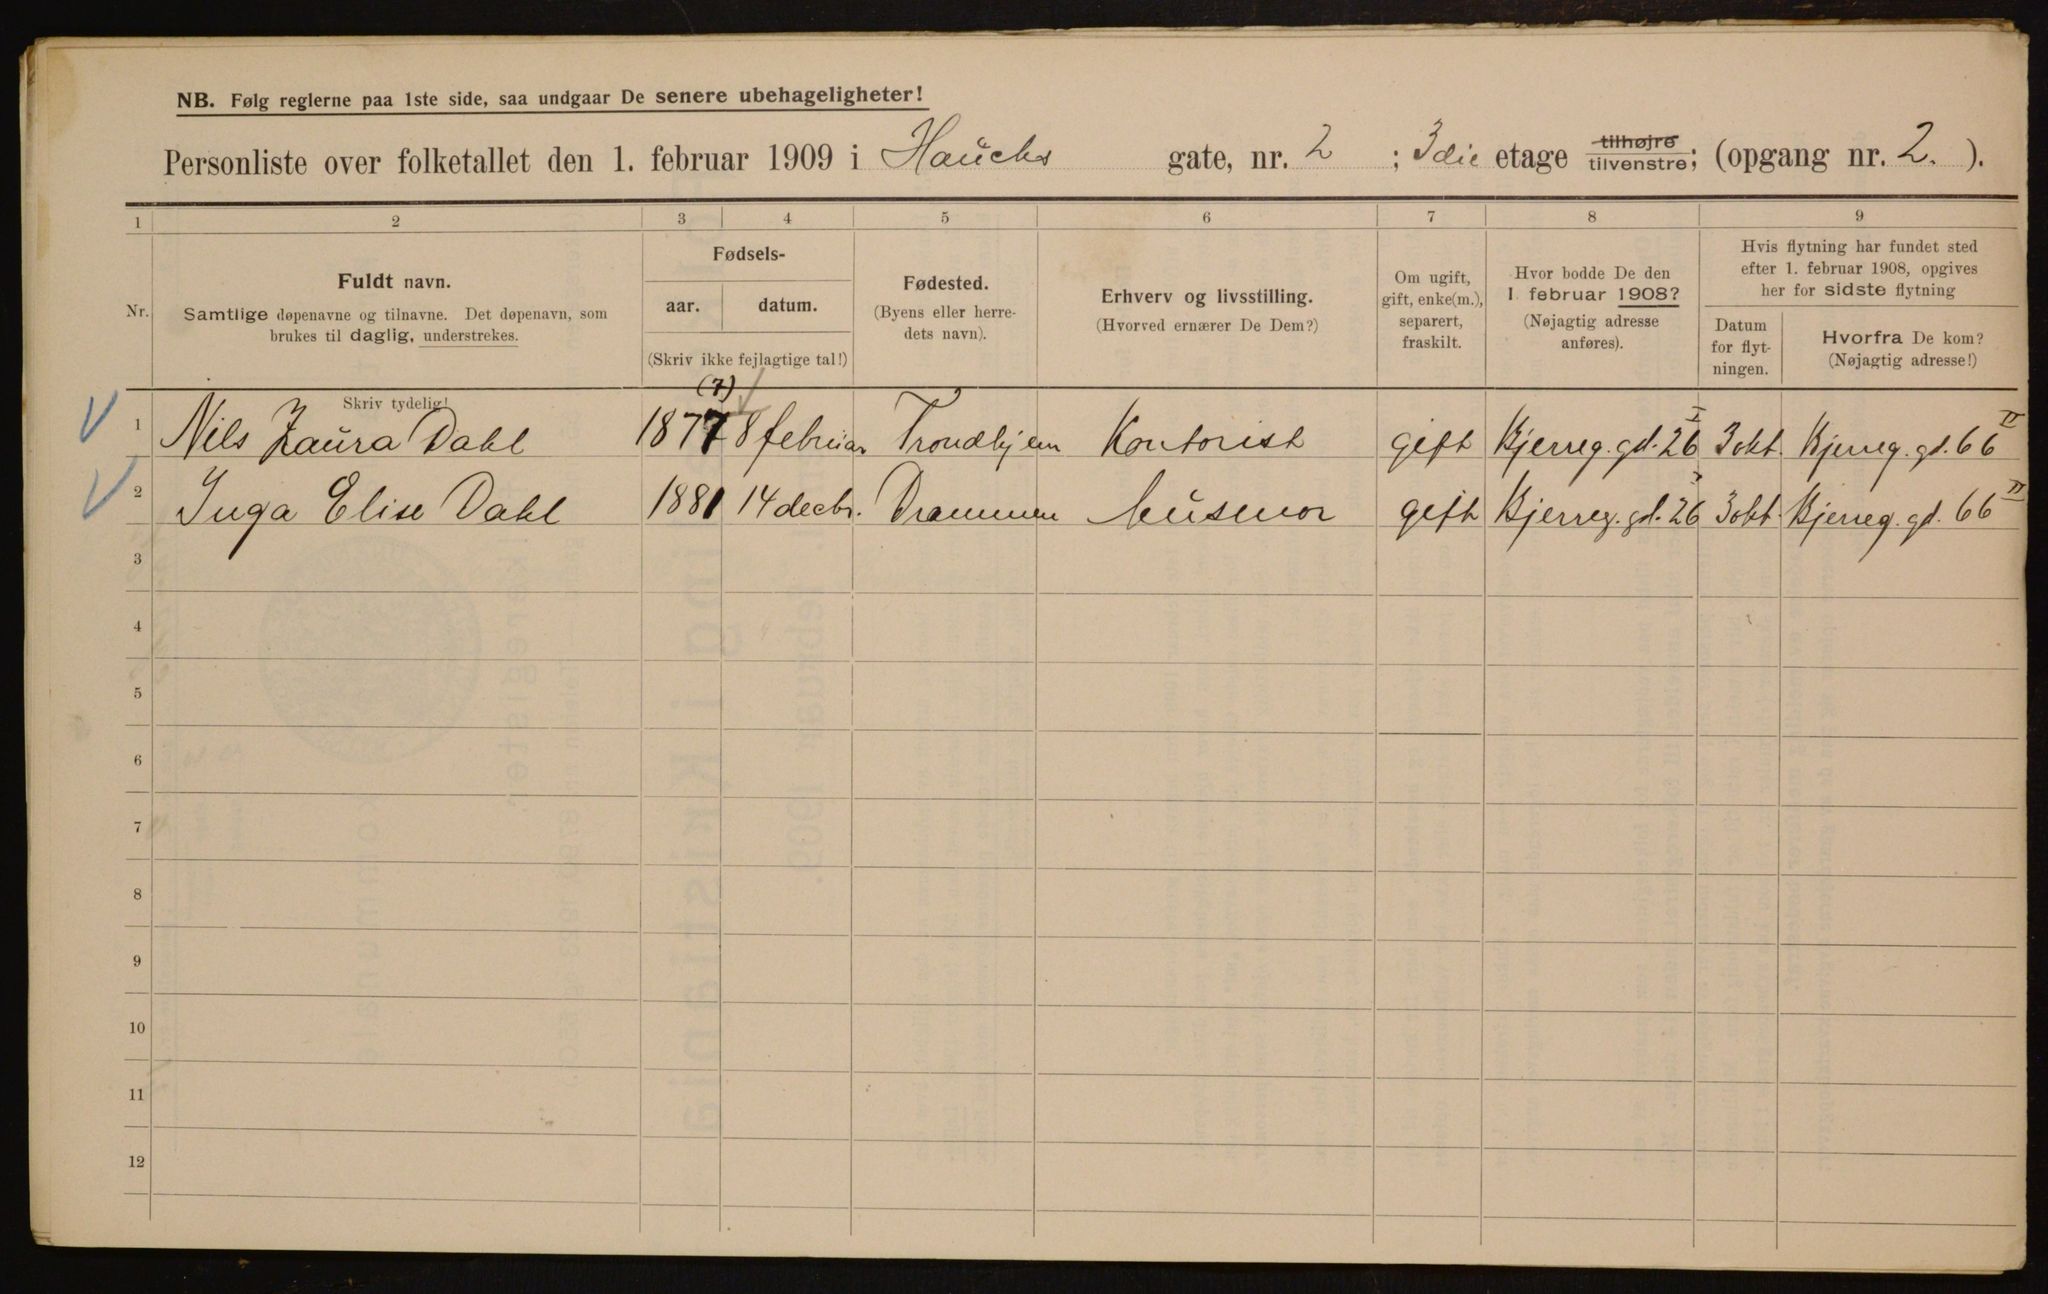 NB. Følg reglerne paa 1ste side, saa undgaar De senere ubehageligheter!
Personliste over folketallet den 1. februar 1909 i Hauchs gate, nr. 2 ; 3die etage tilhøjre tilvenstre; (opgang nr. 2. ).
1 2 3 4 5 6 7 8 9
Nr.
Fuldt navn.
Samtlige døpenavne og tilnavne. Det døpenavn, som
brukes til daglig, understrekes.
Skriv tydelig!
Fødsels-
aar. datum.
(Skriv ikke fejlagtige tal!)
Fødested.
(Byens eller herre-
dets navn).
Erhverv og livsstilling.
(Hvorved ernærer De Dem?)
Om ugift,
gift, enke(m.),
separert,
fraskilt.
Hvor bodde De den
1. februar 1908?
(Nøjagtig adresse
anføres).
Hvis flytning har fundet sted
efter 1. februar 1908, opgives
her for sidste flytning
Datum
for flyt-
ningen.
Hvorfra De kom?
(Nøjagtig adresse!)
(7)
1 Nils Laura Dahl 1877 8 februar Trondhjem Kontorist gift Bjerreg. gd. 26 I 3 okt. Bjerreg. gd. 66 II
2 Inga Elise Dahl 1881 14 decbr. Drammen Husmor gift Bjerreg. gd. 26 I 3 okt. Bjerreg. gd. 66 II
3
4
5
6
7
8
9
10
11
12